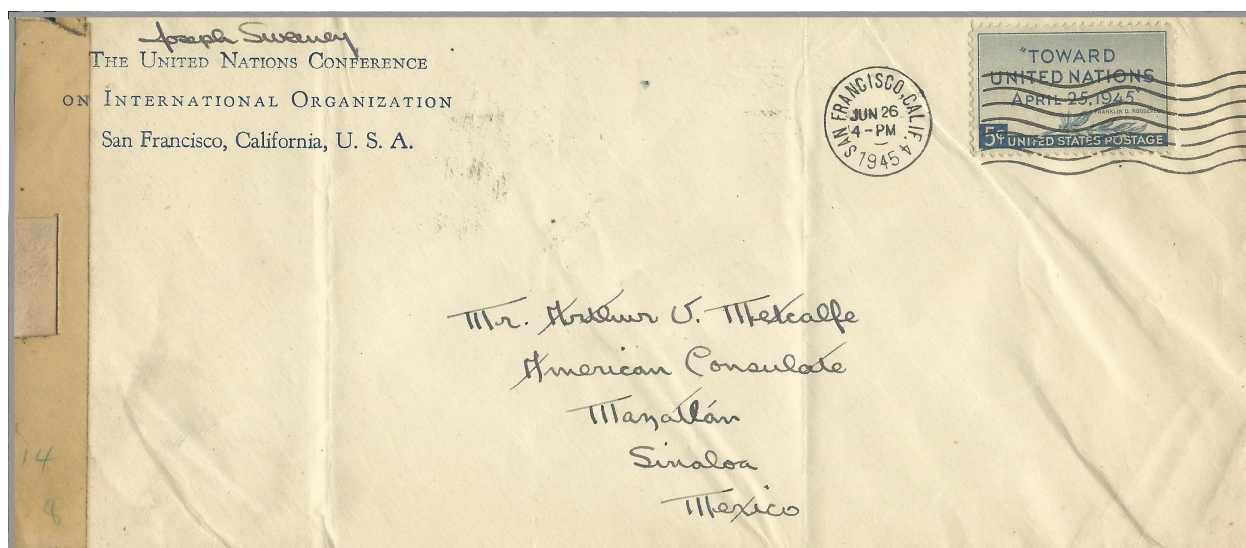 Joseph Sweeney
THE UNITED NATIONS CONFERENCE
ON INTERNATIONAL ORGANIZATION
San Francisco, California, U. S. A.
SAN FRANCISCO, CALIF. 4
JUN 26
4-PM
1945
"TOWARD
UNITED NATIONS
APRIL 25, 1945"
FRANKLIN D. ROOSEVELT
5¢ UNITED STATES POSTAGE
Mr. Arthur V. Metcalfe
American Consulate
Mazatlán
Sinaloa
Mexico
14
8